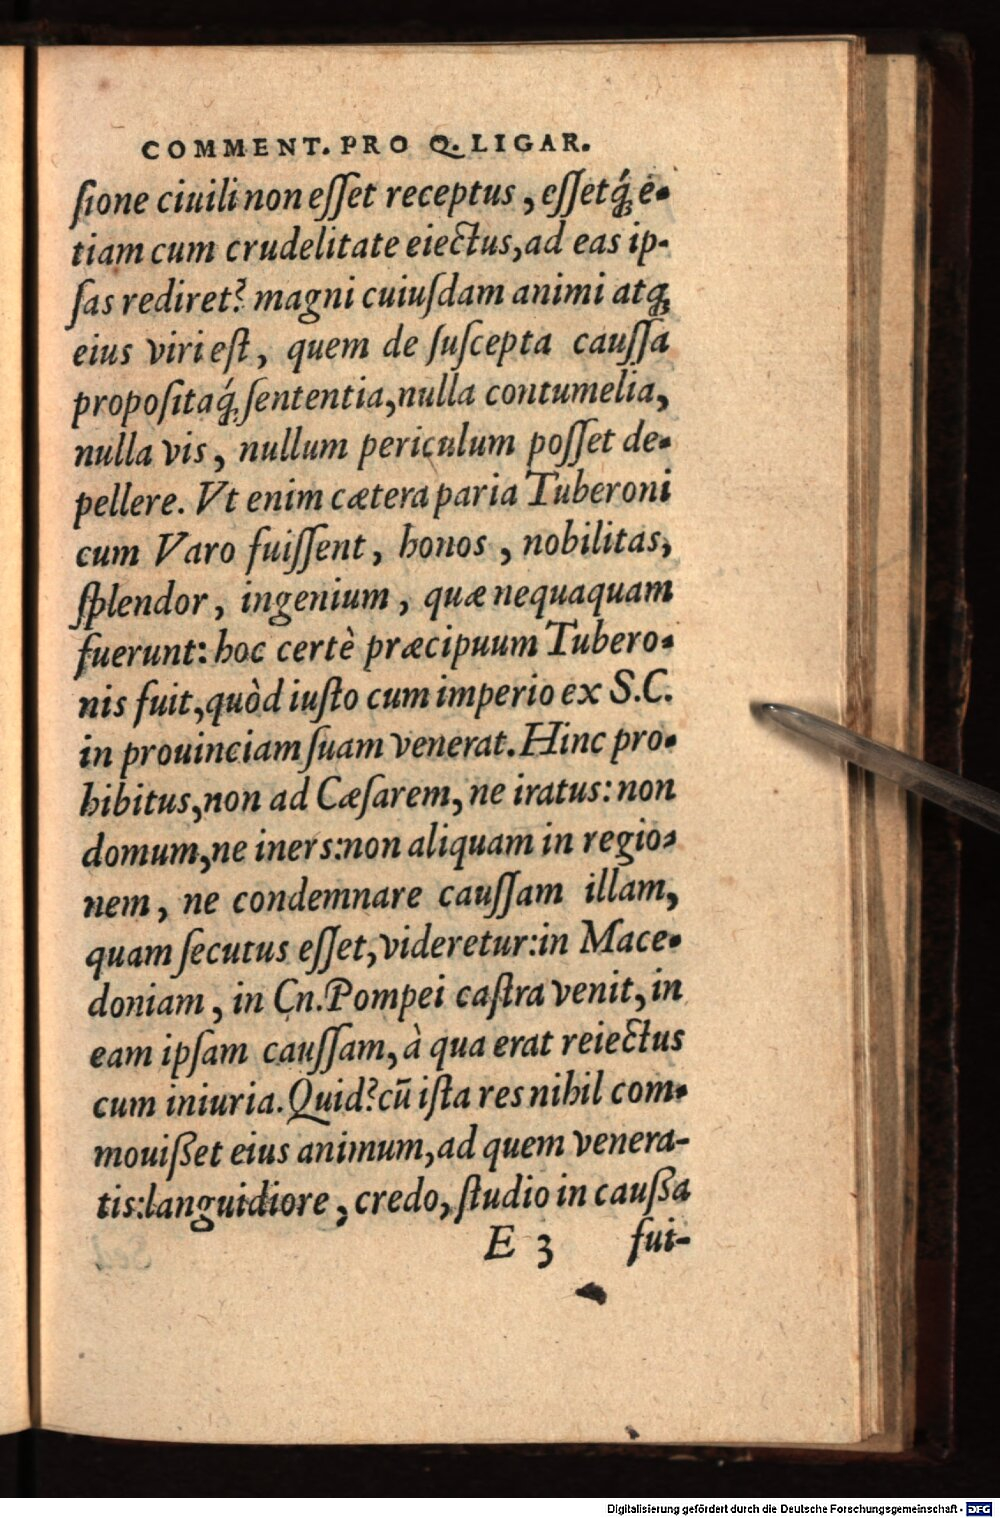 COMMENT. PRO Q. LIGAR.
ſione ciuili non eſſet receptus, eſſetq́; e-
tiam cum crudelitate eiectus, ad eas ip-
ſas rediret? magni cuiuſdam animi atq;
eius viri eſt, quem de ſuſcepta cauſſa
propoſitaq́; ſententia, nulla contumelia,
nulla vis, nullum periculum poſſet de-
pellere. Vt enim cætera paria Tuberoni
cum Varo fuiſſent, honos, nobilitas,
ſplendor, ingenium, quæ nequaquam
fuerunt: hoc certè præcipuum Tubero-
nis fuit, quòd iuſto cum imperio ex S.C.
in prouinciam ſuam venerat. Hinc pro-
hibitus, non ad Cæſarem, ne iratus: non
domum, ne iners: non aliquam in regio-
nem, ne condemnare cauſſam illam,
quam ſecutus eſſet, videretur: in Mace-
doniam, in Cn. Pompei caſtra venit, in
eam ipſam cauſſam, à qua erat reiectus
cum iniuria. Quid? cū iſta res nihil com-
mouißet eius animum, ad quem venera-
tis: languidiore, credo, ſtudio in caußa
E 3 fui-
Digitalisierung gefördert durch die Deutsche Forschungsgemeinschaft - DFG